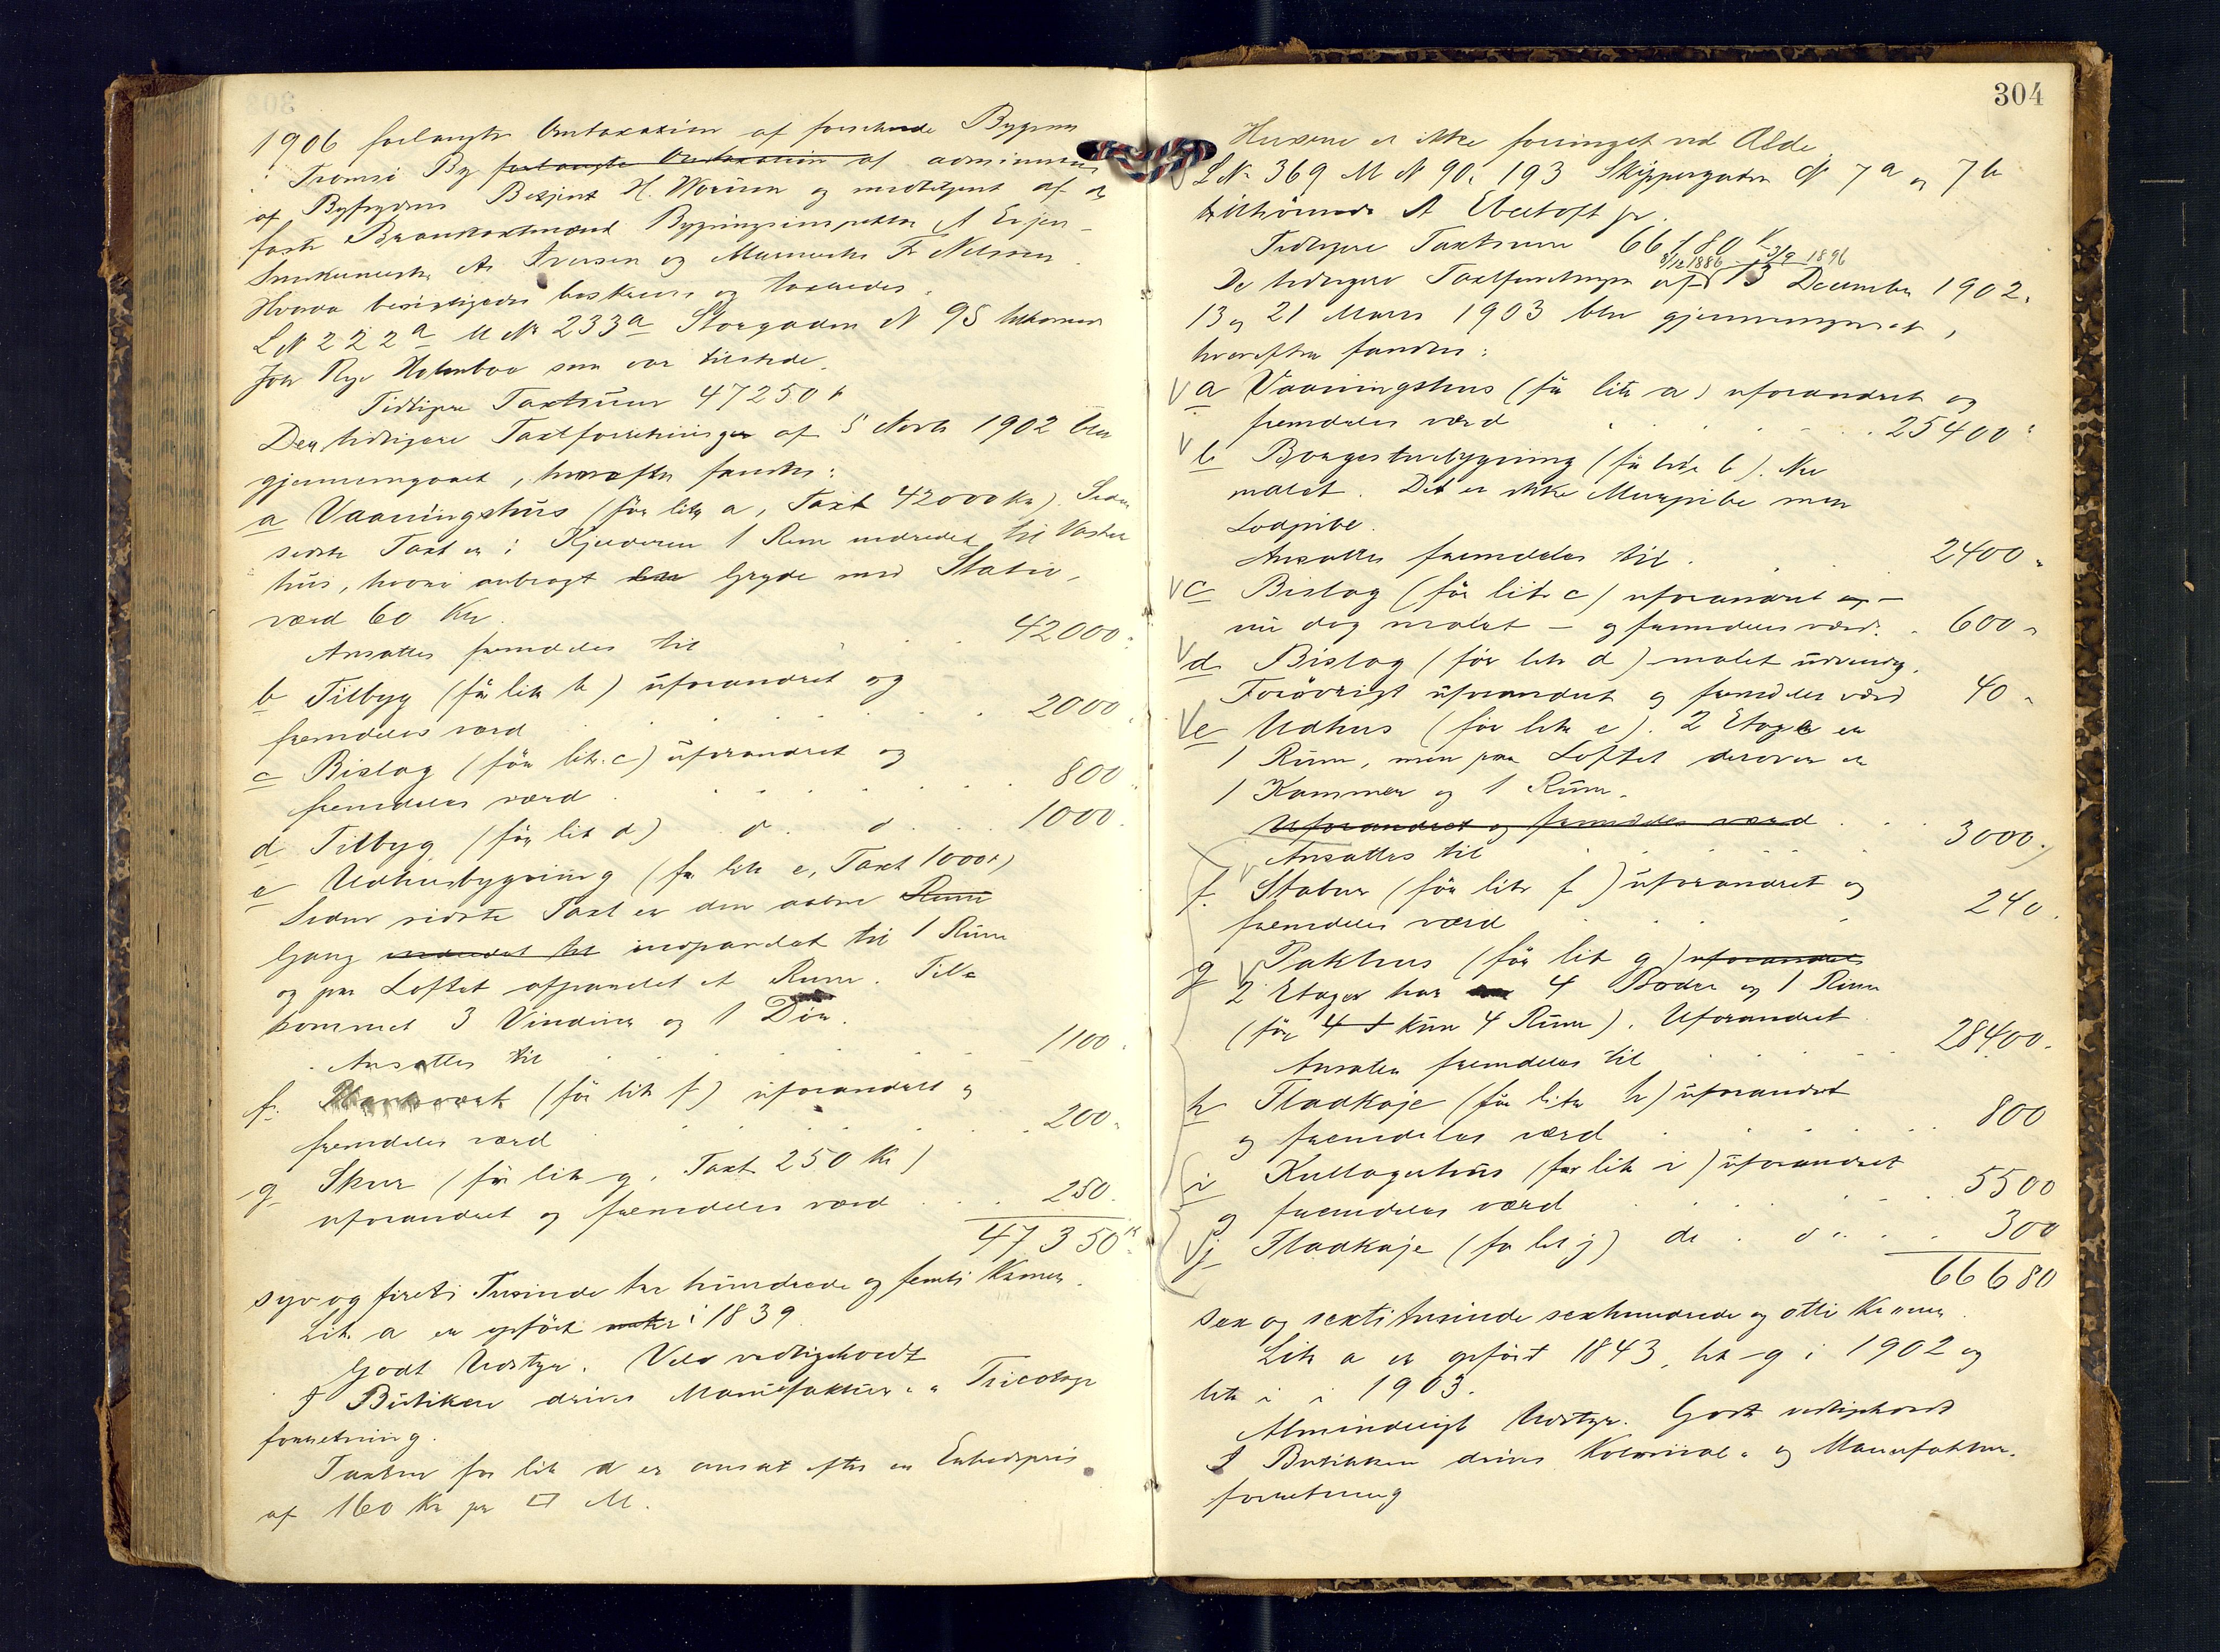 1906 forlangte Omtaxation af forskende Bygnin
i Tromsö By forlangte Omtaxation af administreret
af Byfogdens Betjent H. Worum og medbetjent af de
faste Brandtaxtmænd Bygningsinspektør A Evjen
Snekermester As Iversen og Murmester Fr Nilsen.
Hvorda besigtigedes beskrives og taxeredes.
L N 222a M Nr 233a Storgaden N 95 tilhörende
Joh Rye Holmboe som var tilstede.
Tidligere Taxtsum 47250 k
Den tidligere Taxtforretninger af 5 Novb 1902 blev
gjennemgaaet, hvorefter fandtes:
a Vaaningshus (för litr a, Taxt 42000 Kr) Siden
sidste Taxt er i Kjelderen 1 Rum indredet til Vasker
hus, hvori anbragt en Gryde med Stativ,
værd 60 Kr.
Ansattes fremdeles til 42000.
b Tilbyg (för litr b) uforandret og
fremdeles værd 2000
c Bislag (för litr. c) uforandret og
fremdeles værd 800
d Tilbyg (för litr d) d. d. 1000.
e Udhusbygning (för litr e, Taxt 1000 k)
Siden sidste Taxt er den aabne Rum
Gang indredet til indpandet til 1 Rum
og paa Loftet afpandet et Rum. Til-
kommet 3 Vinduer og 1 Dör.
Ansattes til 1100.
f. (för litr f) uforandret og
fremdeles værd 200.
g Skur (för litr g. Taxt 250 Kr)
uforandret og fremdeles værd 250.
47350 k
syv og fireti Tusinde tre hundrede og femti Kroner.
Litr a er opfört i 1839
Godt Udstyr. Vel vedligeholdt
I Butiken drives Manufaktur- & Tricotage
forretning.
Taxten for litr d er ansat efter en Enhedspris
af 160 Kr pr □ M.
304
Husene er ikke forringet ved Ælde
L Nr 369 M N 90 & 193 Skippergaden N 7a og 7b
tilhörende A Ebeltoft jr.
Tidligere Taxtsum 66180 K
8/12 1886 3/9 1896
De tidligere Taxtforretninger af 13 December 1902,
13 og 21 Mars 1903 blev gjennemgaaet,
hvorefter fandtes:
a Vaaningshus (för litr a) uforandret og
fremdeles værd 25400
b Borgestuebygning (för litr b). Nu
malet. Det er ikke Murpibe men
Lodpibe.
Ansattes fremdeles til 2400
c Bislag (för litr c) uforandret og –
nu dog malet – og fremdeles værd. 600
d Bislag (för litr d) malet udvendig.
Forövrigt uforandret og fremdeles værd 40
e Udhus (för litr e). 2 Etage er
1 Rum, men paa Loftet derover er
1 Kammer og 1 Rum.
Uforandret og fremdeles værd
Ansattes til 3000.
f. Stabur (för litr f) uforandret og
fremdeles værd 240.
g Pakhus (för lit g) uforandret
2 Etager har 4 Boder og 1 Rum
(för 4 + kun 4 Rum). Uforandret
Ansattes fremdeles til 28400.
h Fladkaje (för litr h) uforandret
og fremdeles værd 800
i Kullagerhus (før litr i) uforandret
og fremdeles værd 5500
j Fladkaje (for lit j) do. d 300
66680
sex og sexti tusinde sexhundrede og otti Kroner.
Litr a er opfört 1843, litr g i 1902 og
litr i i 1903.
Almindeligt Udstyr. Godt vedligeholdt
I Butikken drives Kolonial- og Manufaktur-
forretning